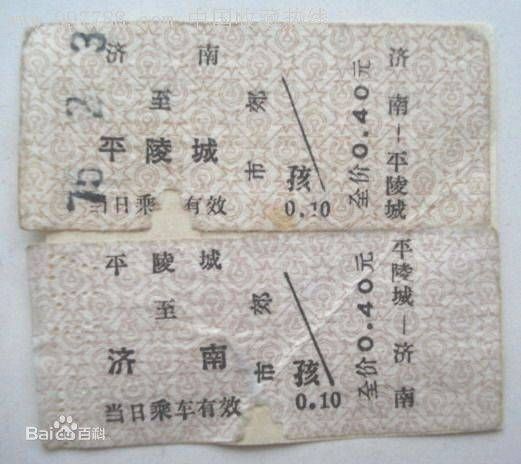 中国收藏热线
济南
至
平陵城
当日乘 有效
市郊
孩
0.10
全价0.40元
济南—平陵城
75 2 3
平陵城
至
济南
当日乘车有效
市郊
孩
0.10
全价0.40元
平陵城—济南
Bai百科